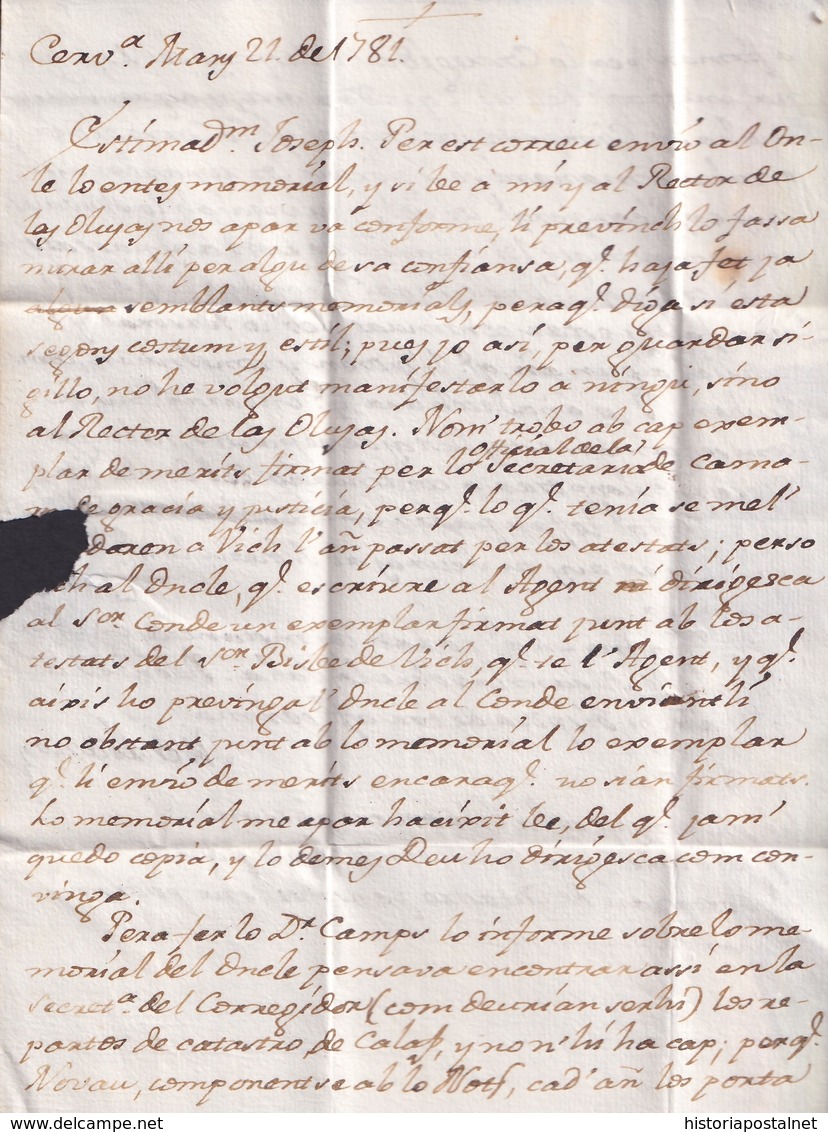 Cerv.a Mars 21. de 1781.
Estimad.m Joseph. Per est correu envio al On-
cle lo entes memorial, y si be a mi y al Rector de
las Olujas nos apar va conforme, li previnch lo fassa
mirar alli per algu de sa confiansa, q.e haja fet ja
semblants memorials, peraq.e diga si esta
segons costum y estil; pues jo asi, per guardar si-
gillo, no he volgut manifestarlo a ningu, sino
al Rector de las Olujas. Nom trobo ab cap exem-
plar de merits firmat per lo official de la secretaria de Cama-
de gracia y justicia, perq.e lo q.e tenia se mel'
daron a Vich l'añ passat per los atestats; perso
al Oncle, q.e escriure al Agent dirigesca
al S.or Conde un exemplar firmat junt ab los a-
testats del S.or Bisbe de Vich, q.e te l'Agent, y q.e
aixis ho previnga l'Oncle al Conde enviantli
no obstant junt ab lo memorial lo exemplar
q.e li envio de merits encaraq.e no sian firmats.
Lo memorial me apar ha eixit be, del q.e jam
quedo copia, y lo demes Deu ho dirigesca com con-
vinga.
Pera fer lo D.r Camps lo informe sobre lo me-
morial del Oncle pensava encontrar assi en la
Secret.a del Corregidor (com deurian serhi) los re-
partos de catastro de Calaf, y non' hi ha cap; perq.e
Novau, componentse ab lo Not.s, cad' añ los porta
historiapostalnet